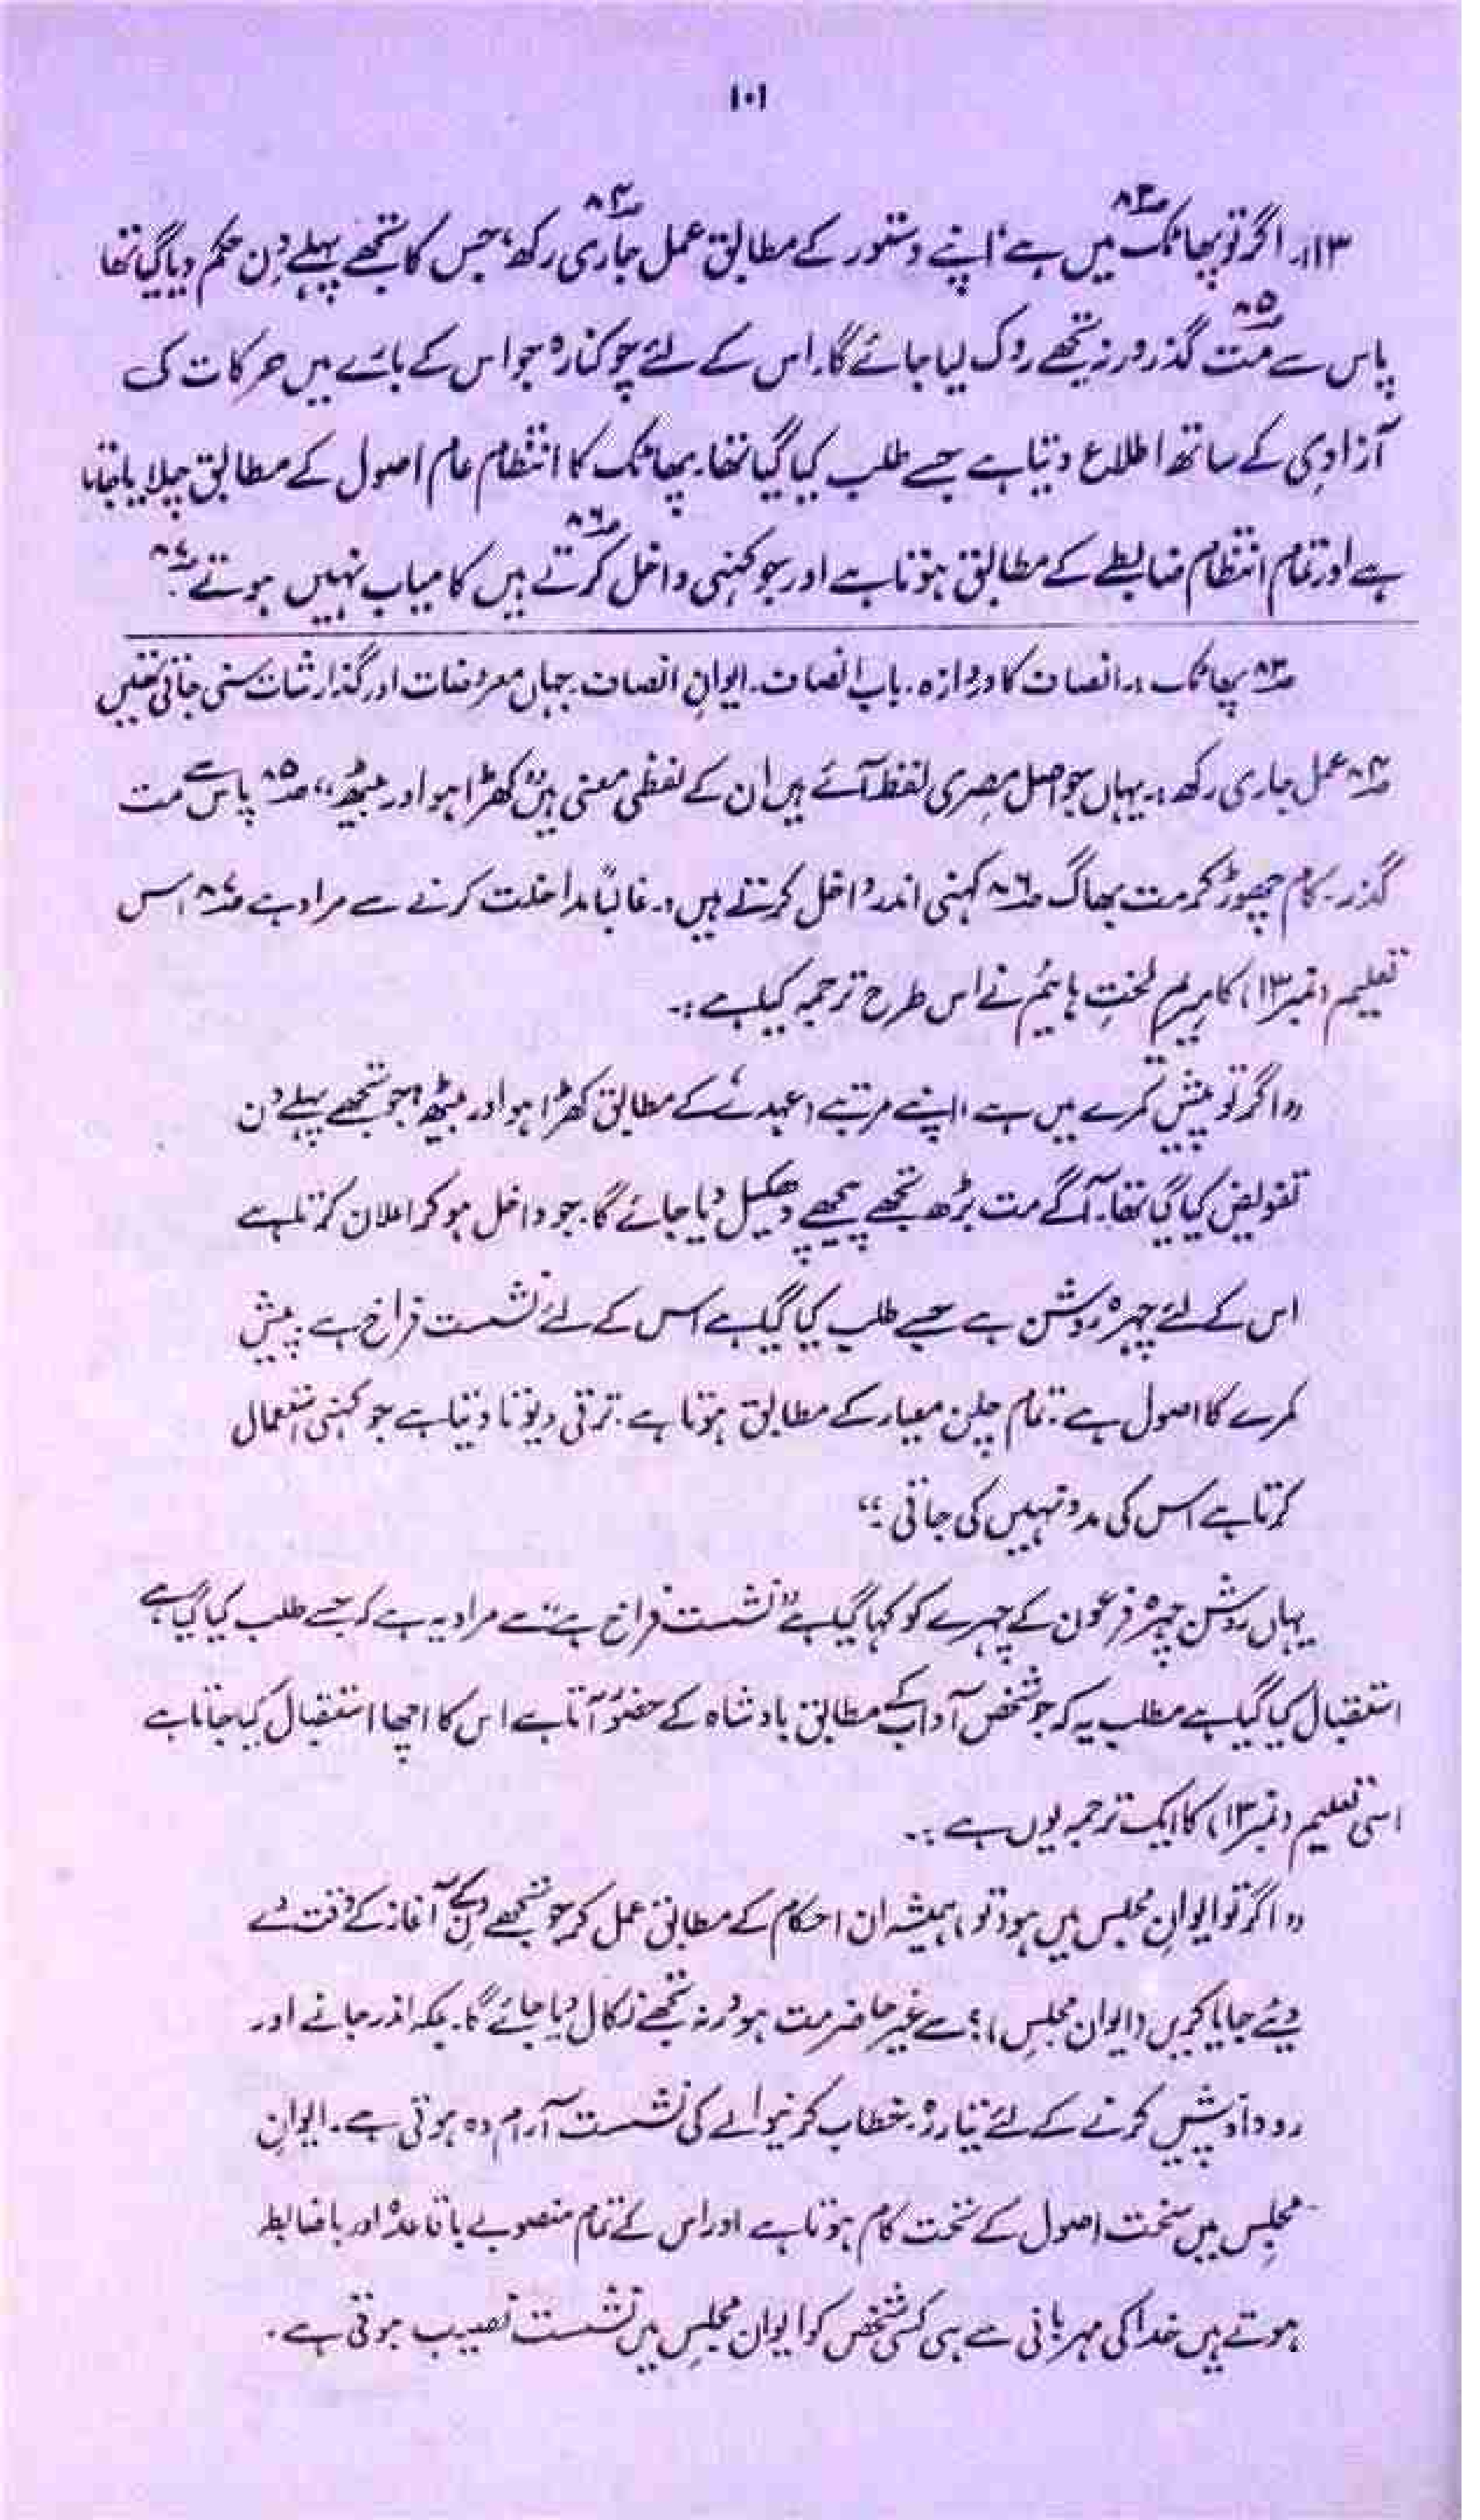 ۱۰۱
۱۳۔ اگر تو پھاٹک۸۳ میں ہے، اپنے دستور کے مطابق عمل جاری۸۴ رکھ، جس کا تجھے پہلے دن حکم دیا گیا تھا
پاس سے مت۸۵ گذر ورنہ تجھے روک لیا جائے گا۔ اس کے لئے چوکنا رہ جو اس کے بارے میں حرکات کی
آزادی کے ساتھ اطلاع دیتا ہے جسے طلب کیا گیا تھا۔ پھاٹک کا انتظام عام اصول کے مطابق چلایا جاتا
ہے اور تمام انتظام ضابطے کے مطابق ہوتا ہے اور جو کہنی داخل کرتے۸۶ ہیں کامیاب نہیں ہوتے۸۷۔
۸۳ پھاٹک :۔ انصاف کا دروازہ۔ باب انصاف۔ ایوانِ انصاف۔ جہاں معروضات اور گذارشات سنی جاتی تھیں
۸۴ عمل جاری رکھ :۔ یہاں جو اصل مصری لفظ آئے ہیں ان کے لفظی معنی ہیں ”کھڑا ہو اور بیٹھ“ ۸۵ پاس سے مت
گذر۔ کام چھوڑ کر مت بھاگ ۸۶ کہنی اندر داخل کرتے ہیں :۔ غالباً مداخلت کرنے سے مراد ہے ۸۷ اس
تعلیم (نمبر ۱۳) کا مریم لخت ہائیم نے اس طرح ترجمہ کیا ہے :۔
”اگر تو پیش کمرے میں ہے، اپنے مرتبے (عہدے) کے مطابق کھڑا ہو اور بیٹھ، جو تجھے پہلے دن
تفویض کیا گیا تھا۔ آگے مت بڑھ تجھے پیچھے دھکیل دیا جائے گا۔ جو داخل ہو کر اعلان کرتا ہے
اس کے لئے چہرہ روشن ہے جسے طلب کیا گیا ہے اس کے لئے نشست فراخ ہے۔ پیش
کمرے کا اصول ہے۔ تمام چلن معیار کے مطابق ہوتا ہے۔ ترقی دیوتا دیتا ہے جو کہنی استعمال
کرتا ہے اس کی مدد نہیں کی جاتی۔“
یہاں روشن چہرہ فرعون کے چہرے کو کہا گیا ہے ”نشست فراخ ہے“ سے مراد یہ ہے کہ جسے طلب کیا گیا ہے
استقبال کیا گیا ہے مطلب یہ کہ جو شخص آداب کے مطابق بادشاہ کے حضور آتا ہے اس کا اچھا استقبال کیا جاتا ہے
اسی تعلیم (نمبر ۱۳) کا ایک ترجمہ یوں ہے :۔
”اگر تو ایوانِ مجلس میں ہو (تو) ہمیشہ ان احکام کے مطابق عمل کر جو تجھے دن کے آغاز کے وقت دے
دیئے جایا کریں (ایوان مجلس)؛ سے غیر حاضر مت ہو ورنہ تجھے نکال دیا جائے گا۔ بلکہ اندر جانے اور
روداد پیش کرنے کے لئے تیار رہ۔ خطاب کرنیوالے کی نشست آرام دہ ہوتی ہے۔ ایوانِ
مجلس میں سخت اصول کے تحت کام ہوتا ہے اور اس کے تمام منصوبے باقاعدہ اور باضابطہ
ہوتے ہیں خدا کی مہربانی سے ہی کسی شخص کو ایوان مجلس میں نشست نصیب ہوتی ہے۔